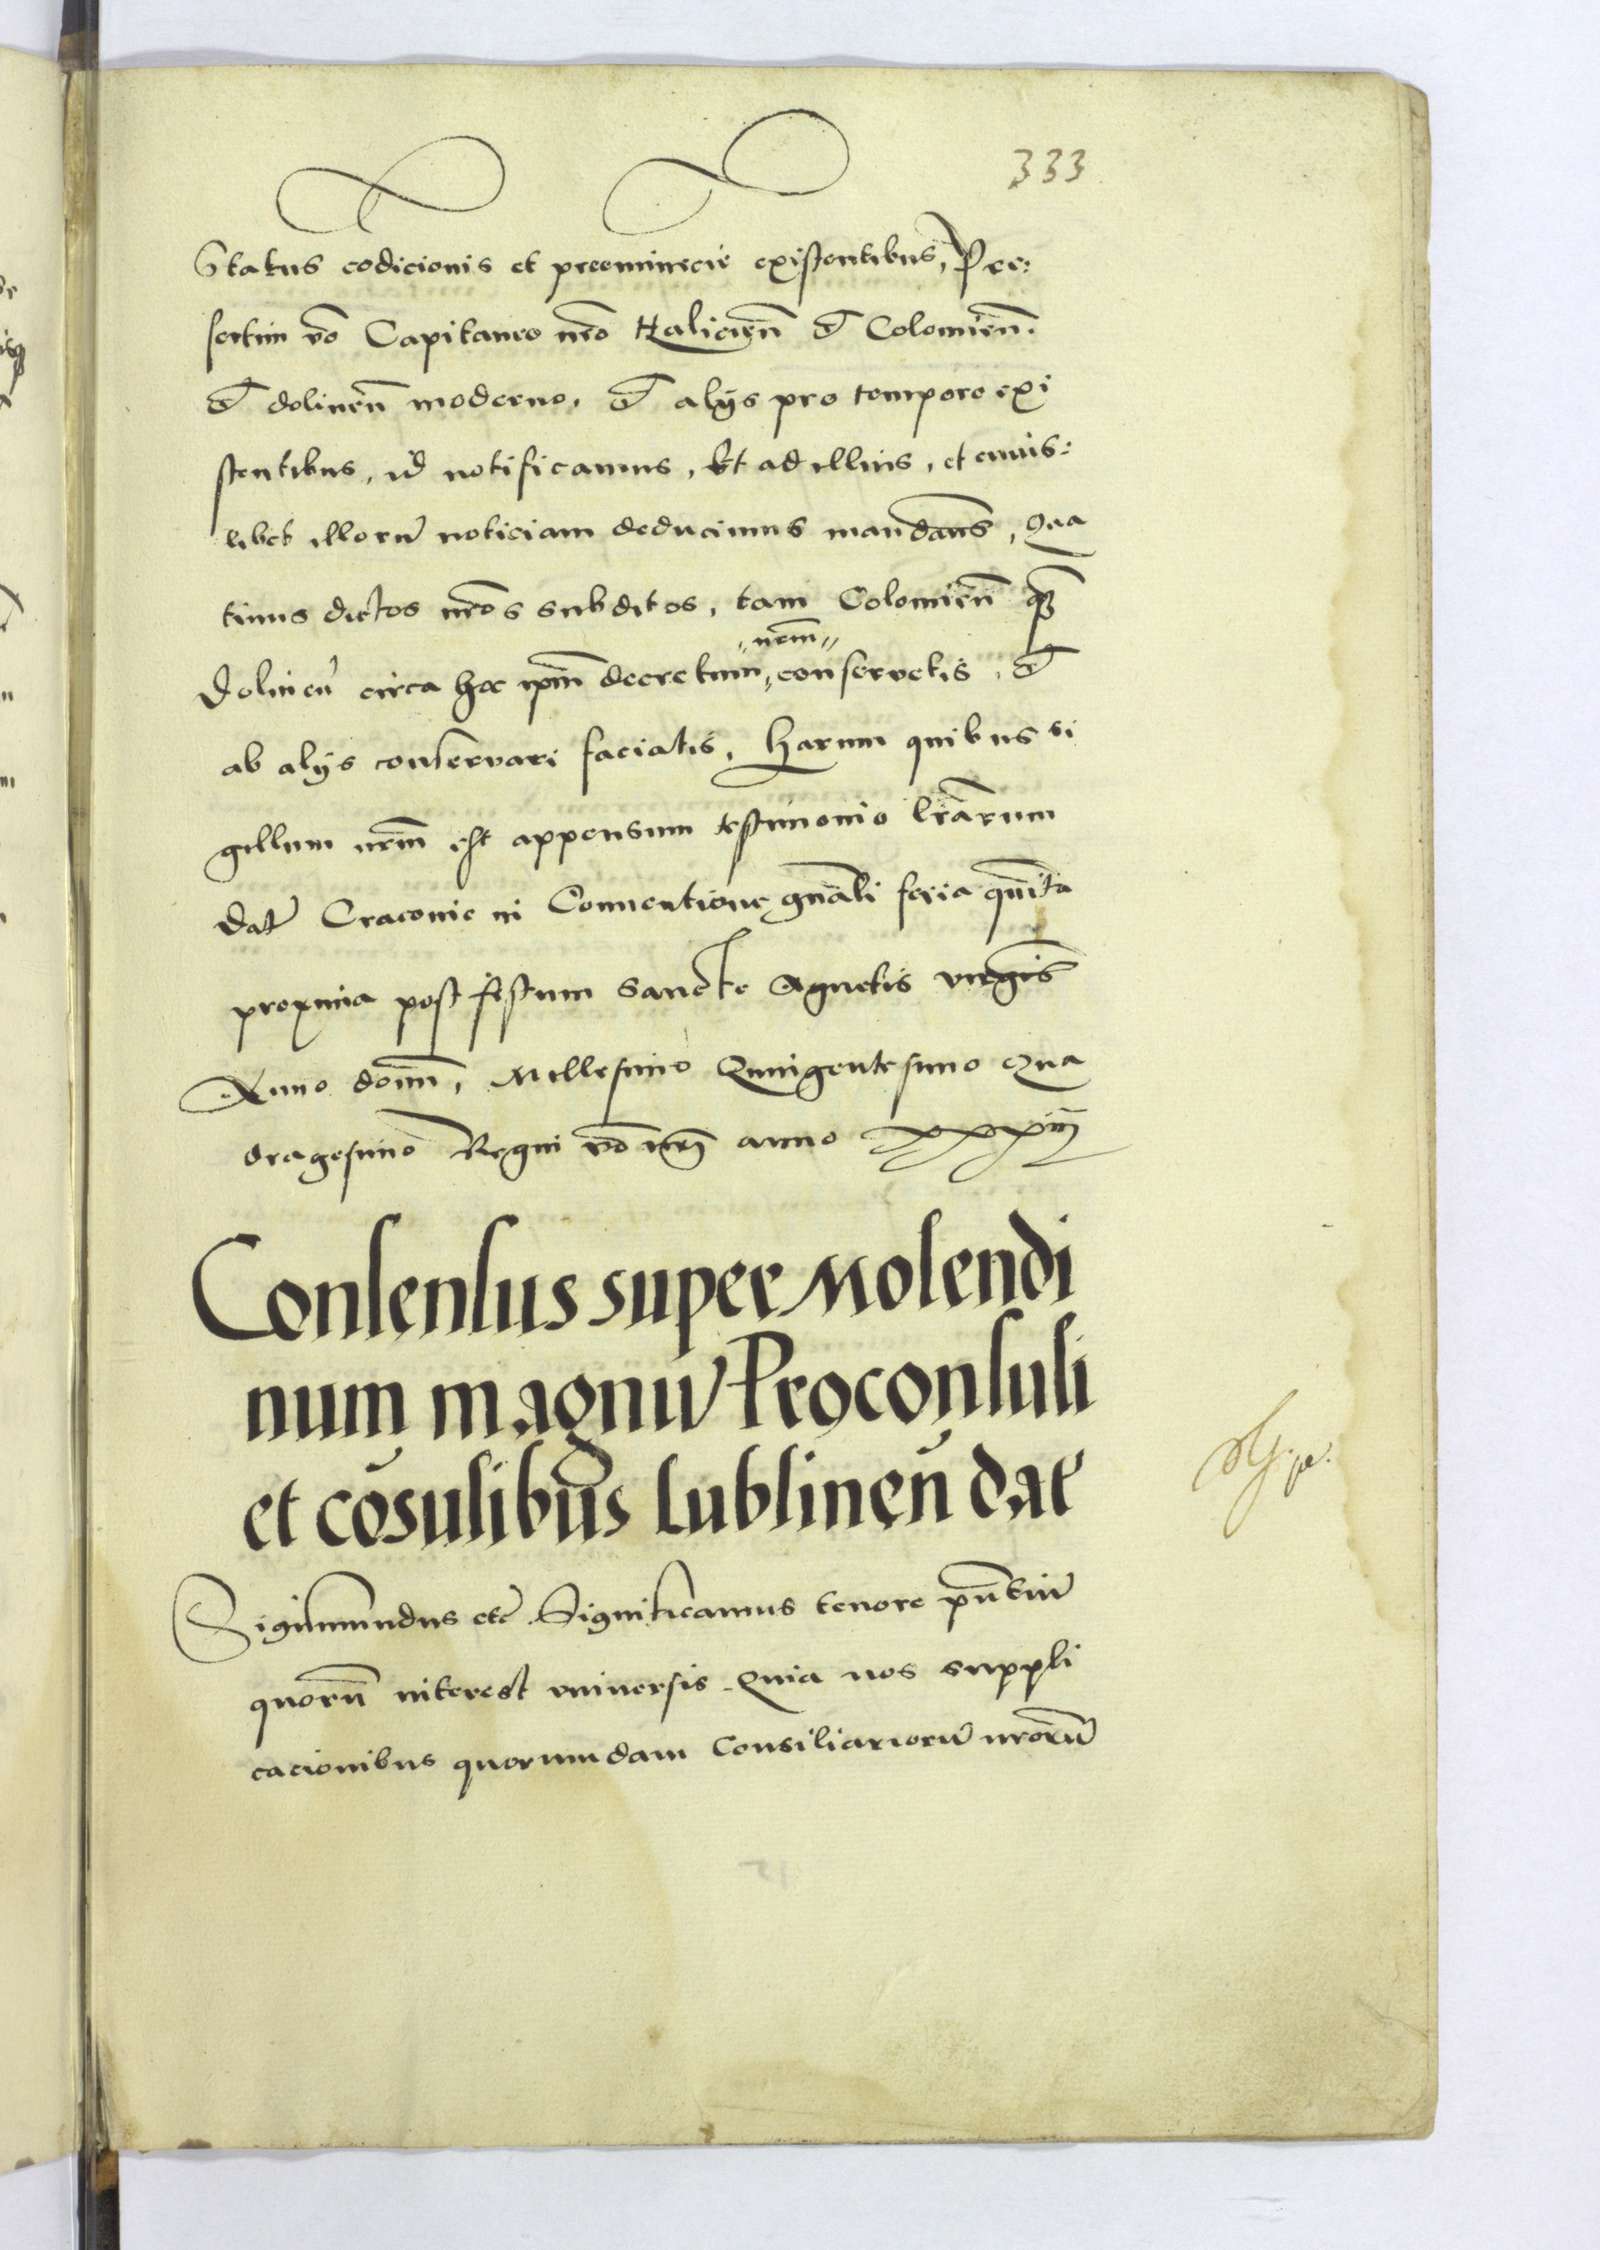 333
Status codicionis et preeminēcie existentibus, Pre:
sertim vo Capitaneo nro Haliciēn et Colomiēn.
et dolinēn moderno, et alijs pro tempore exi
stentibus, id notificamus, Et ad illius, et cuius:
libet illorū noticiam deducimus mandātes, Qua
tinus dictos nros subditos, tam Colomiēn q̄
nrm
Dolineñ circa hoc ipm̄ decretum conservetis, et
ab alijs conservari faciatis, Harum quibus si
gillum nrm est appensum testimonio lrārum
Dat Cracovie in Conventione gnāli feria quīta
proxima post festum Sancte Agnetis virgīs
Anno domī, Millesimo Quingentesimo Qua
dragesimo Regni vo nrī anno xxxiiij
Consensus super Molendi
num magnū Proconsuli
et cōsulibus Lublineñ dat
Sigismundus etc Significamus tenore pn̄tiū
quorū interest universis. Quia nos suppli
cacionibus quorumdam Consiliariorū nrorū